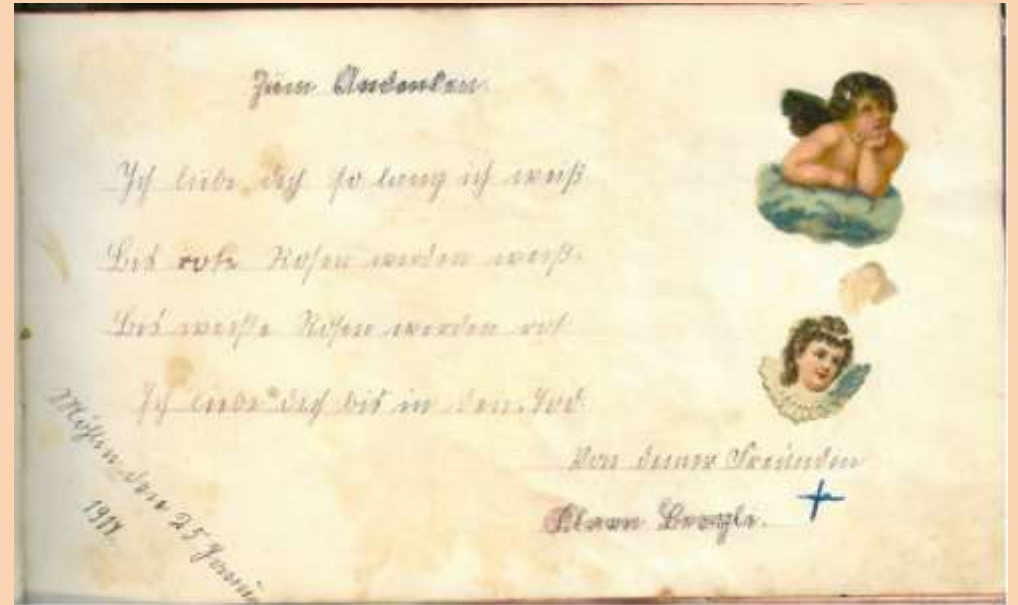 Zum Andenken.
Ich liebe dich so lang ich weiß
Bis rote Rosen werden weiß.
Bis weiße Rosen werden rot
Ich liebe dich bis in den Tod.
Von deiner Freundin
Klara Brogle.
Möhlin, den 25